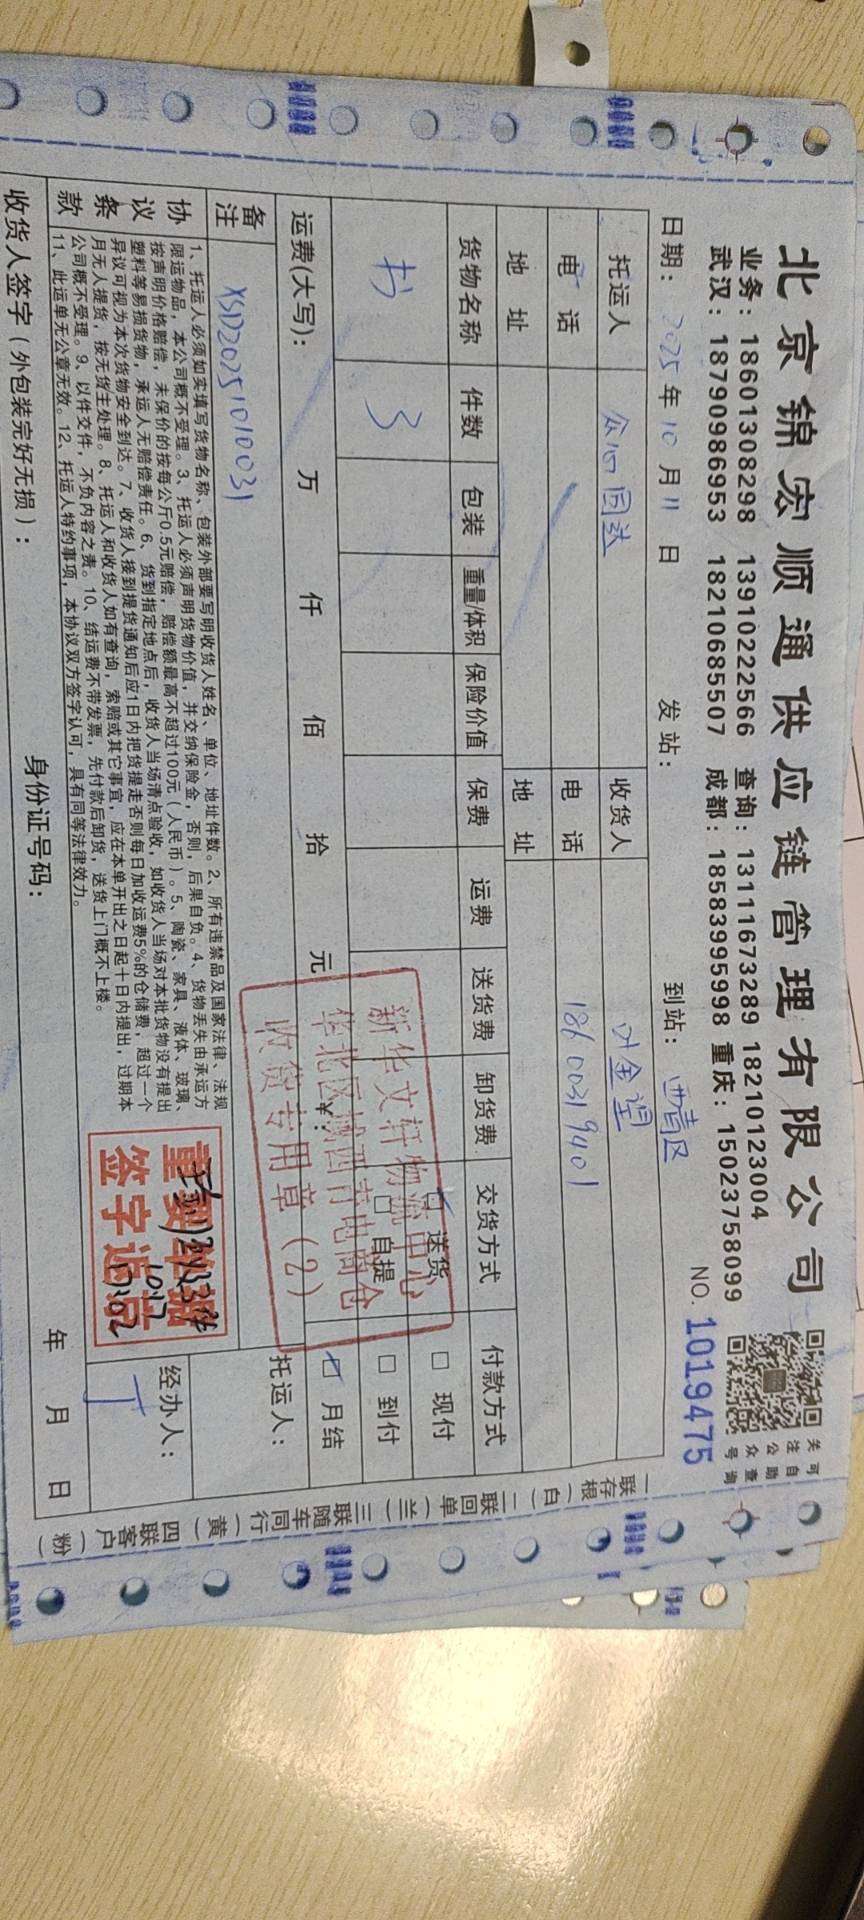 北京锦宏顺通供应链管理有限公司
关注公众号
可自助查询
业务：18601308298 13910222566 查询：13111673289 18210123004
武汉：18790986953 18210685507 成都：18583995998 重庆：15023758099
日期：2025年10月11日 发站： 到站：西青区 NO. 1019475
托运人 收货人 叶金望
电话 电话 18600319401
地址 地址
货物名称 件数 包装 重量/体积 保险价值 保费 运费 送货费 卸货费 交货方式 付款方式
书 3 送货 现付
自提 到付
月结
运费(大写)： 万 仟 佰 拾 元 ¥：
新华文轩物流中心
华北区域西青电商仓
收货专用章（2）
备注 XSD20251010031
托运人：
协议条款
1、托运人必须如实填写货物名称、包装外部要写明收货人姓名、单位、地址件数。2、所有违禁品及国家法律、法规
限运物品，本公司概不受理。3、托运人必须声明货物价值，并交纳保险金，否则，后果自负。4、货物丢失由承运方
按声明价格赔偿，未保价的按每公斤0.5元赔偿，赔偿额最高不超过100元（人民币）。5、陶瓷、家具、液体、玻璃、
塑料等易损货物，承运人无赔偿责任。6、货到指定地点后，收货人当场清点验收，如收货人当场对本批货物没有提出
异议可视为本次货物安全到达。7、收货人接到提货通知后应1日内把货提走否则每日加收运费5%的仓储费，超过一个
月无人提货，按无货主处理。8、托运人和收货人如有查询，索赔或其它事宜，应在本单开出之日起十日内提出，过期本
公司概不受理。9、以件交件，不负内容之责。10、结运费不带发票，先付款后卸货，送货上门概不上楼。
11、此运单无公章无效。12、托运人特约事项，本协议双方签字认可，具有同等法律效力。
重要单据
签字返京
经办人：
丁
收货人签字（外包装完好无损）： 身份证号码： 年 月 日
一联存根（白）二联回单（兰）三联随车同行（黄）四联客户（粉）